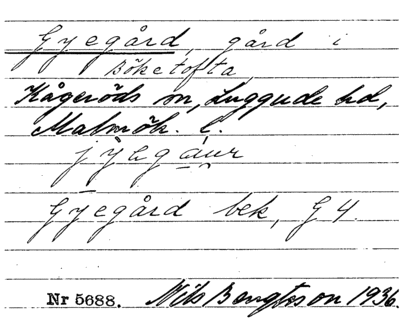 Gyegård, gård i
Böketofta
Kågeröds sn, Luggude hd,
Malmöh. l.
Gyegård bek, G 4.
Nr 5688. Nils Bengtsson 1936.